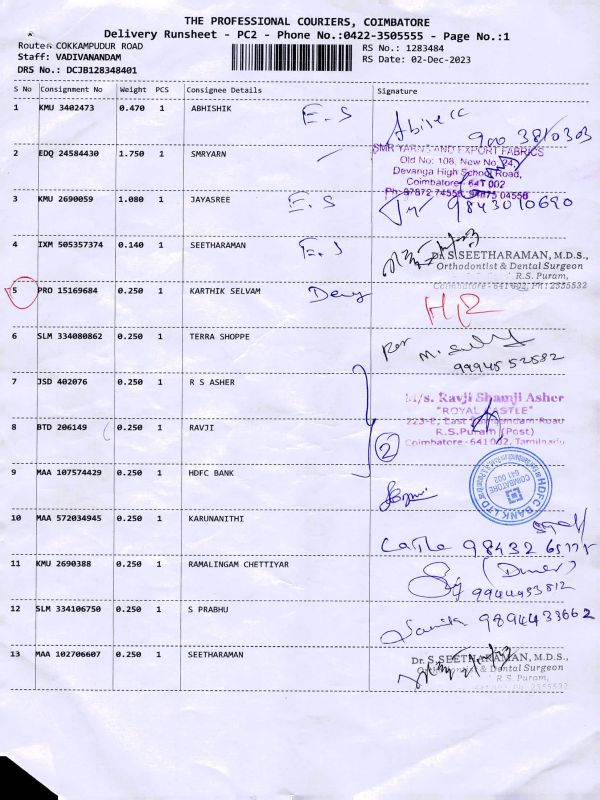 THE PROFESSIONAL COURIERS, COIMBATORE
Delivery Runsheet - PC2 - Phone No.:0422-3505555 - Page No.:1
Route: COKKAMPUDUR ROAD RS No.: 1283484
Staff: VADIVANANDAM RS Date: 02-Dec-2023
DRS No.: DCJB128348401
S No Consignment No Weight PCS Consignee Details Signature
1 KMU 3402473 0.470 1 ABHISHIK E.S
900 3810303
2 EDQ 24584430 1.750 1 SMRYARN
SMR YARNS AND EXPORT FABRICS
Old No: 108, New No. 24,
Devanga High School Road,
Coimbatore - 641 002
3 KMU 2690059 1.080 1 JAYASREE E.S 9843010690
4 IXM 505357374 0.140 1 SEETHARAMAN E.S
Dr. S. SEETHARAMAN, M.D.S.,
Orthodontist & Dental Surgeon
R.S. Puram,
Coimbatore - 641 002, PH: 2355532
5 PRO 15169684 0.250 1 KARTHIK SELVAM
6 SLM 334080862 0.250 1 TERRA SHOPPE
9994552582
7 JSD 402076 0.250 1 R S ASHER
M/s. Ravji Shamji Asher
"ROYAL CASTLE"
8 BTD 206149 0.250 1 RAVJI 2
R.S.Puram (Post)
Coimbatore-641 002, Tamilnadu
9 MAA 107574429 0.250 1 HDFC BANK
HDFC BANK LTD
COIMBATORE
641 002
10 MAA 572034945 0.250 1 KARUNANITHI
98432
11 KMU 2690388 0.250 1 RAMALINGAM CHETTIYAR
9944453812
12 SLM 334106750 0.250 1 S PRABHU
9894433662
13 MAA 102706607 0.250 1 SEETHARAMAN
Dr. S. SEETHARAMAN, M.D.S.,
Orthodontist & Dental Surgeon
R.S. Puram,
2355532